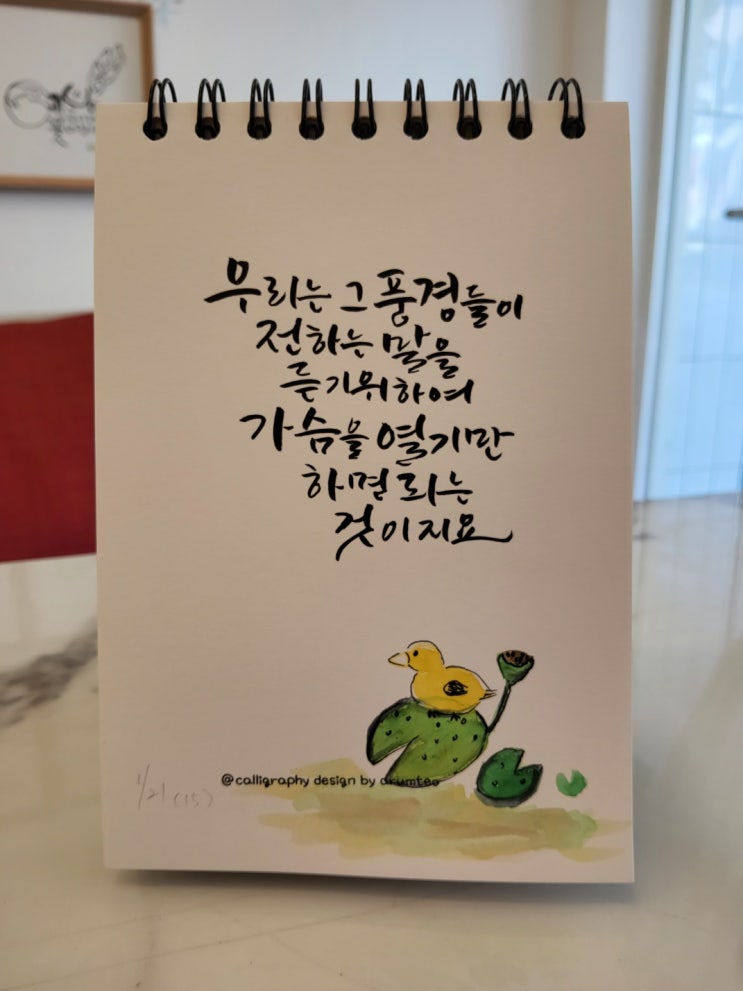 우리는 그 풍경들이
전하는 말을
듣기위하여
가슴을 열기만
하면 되는
것이지요
@calligraphy design by arumteo
1/21 (15)